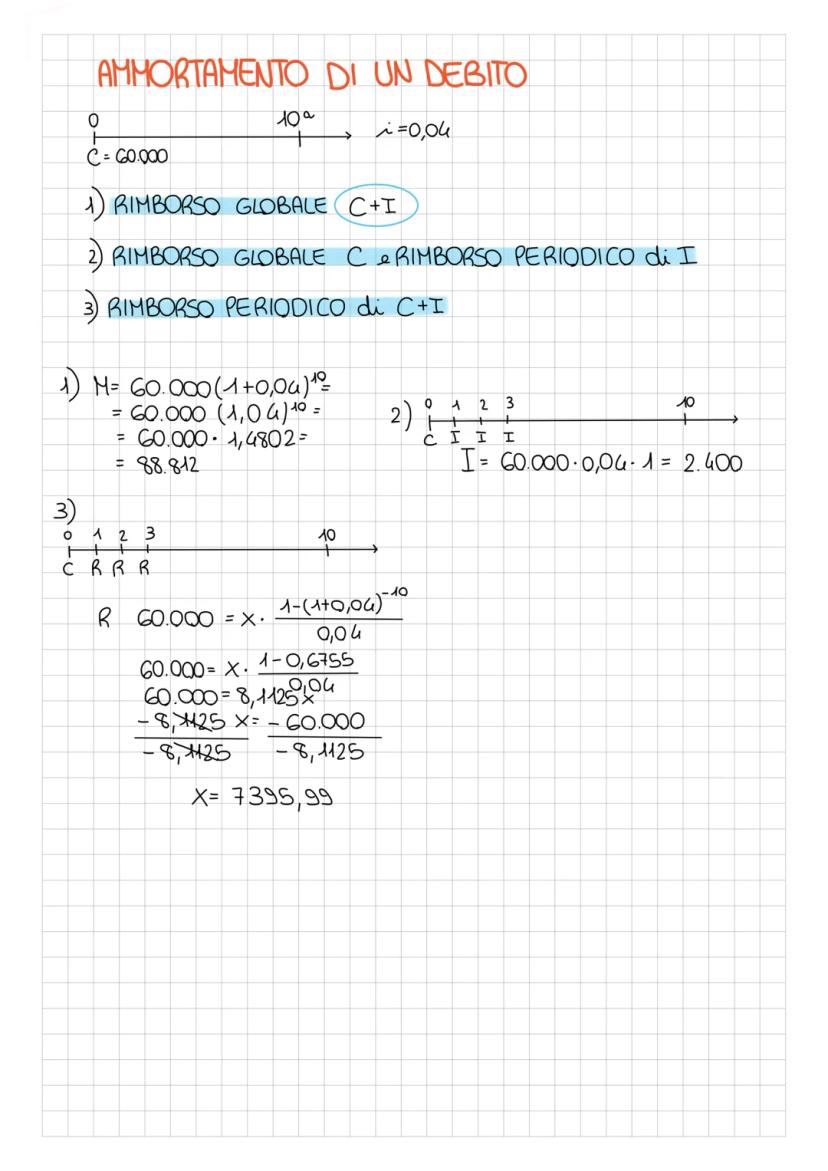 AMMORTAMENTO DI UN DEBITO
0 10ᵃ i=0,04
C = 60.000
1) RIMBORSO GLOBALE C+I
2) RIMBORSO GLOBALE C e RIMBORSO PERIODICO di I
3) RIMBORSO PERIODICO di C+I
1) M= 60.000(1+0,04)¹⁰=
= 60.000 (1,04)¹⁰ =
= 60.000 · 1,4802=
= 88.812
2) 0 1 2 3 10
C I I I
I= 60.000·0,04·1= 2.400
3)
0 1 2 3 10
C R R R
R 60.000 = x· 1-(1+0,04)⁻¹⁰
0,04
60.000= x· 1-0,6755
0,04
60.000=8,1125x
-8,1125 x= -60.000
-8,1125 -8,1125
x= 7395,99